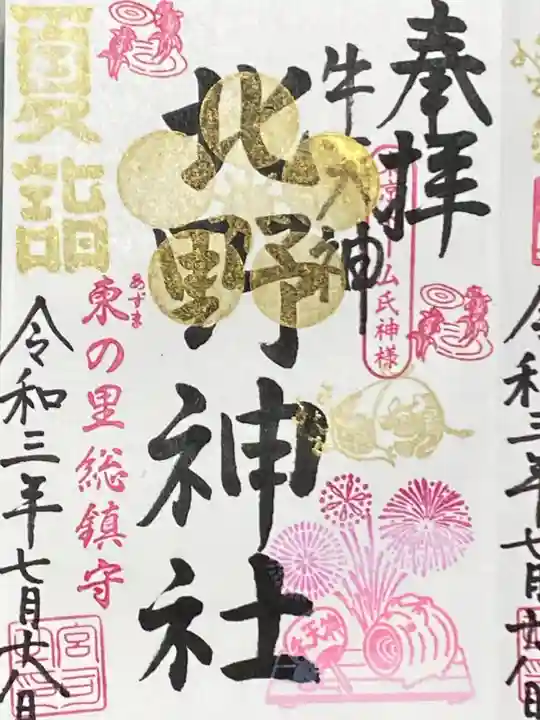 奉拝
牛天神
東京ドーム氏神様
北野神社
夏詣
東の里総鎮守
あずま
令和三年七月廿八日
牛天神